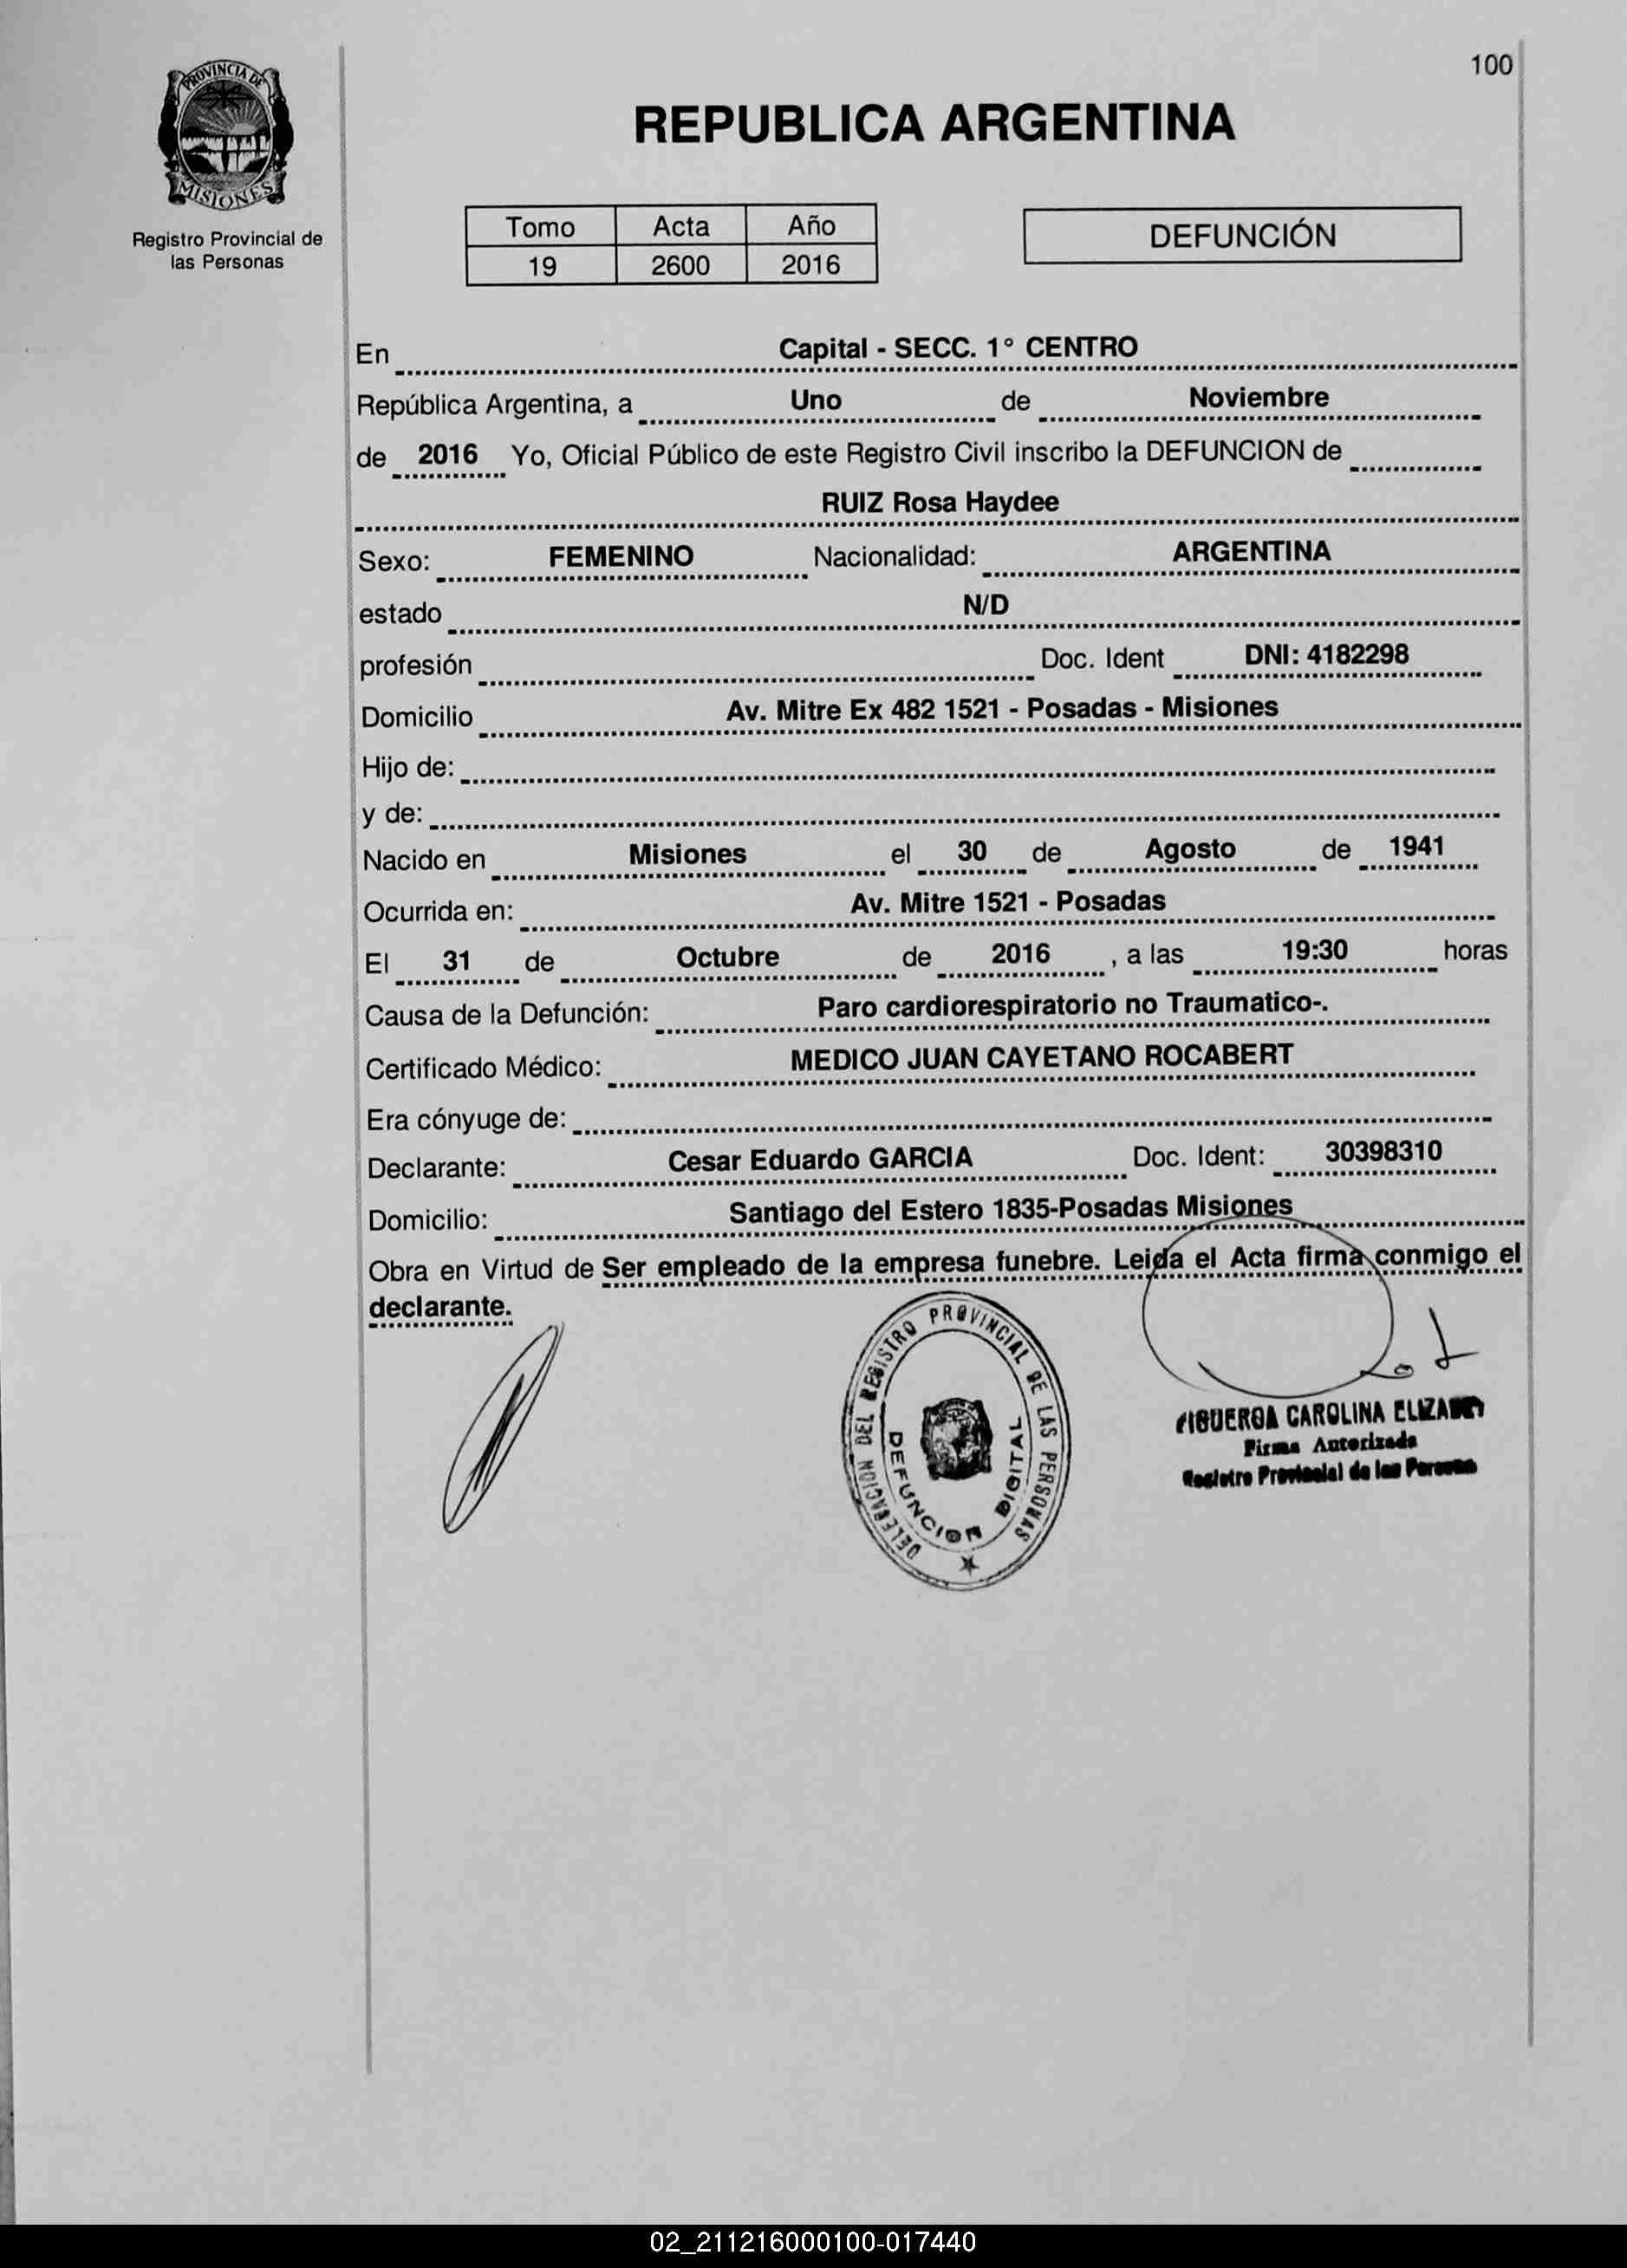 100
PROVINCIA DE
MISIONES
Registro Provincial de
las Personas
REPUBLICA ARGENTINA
Tomo Acta Año
19 2600 2016
DEFUNCIÓN
En Capital - SECC. 1° CENTRO
República Argentina, a Uno de Noviembre
de 2016 Yo, Oficial Público de este Registro Civil inscribo la DEFUNCION de
RUIZ Rosa Haydee
Sexo: FEMENINO Nacionalidad: ARGENTINA
estado N/D
profesión Doc. Ident DNI: 4182298
Domicilio Av. Mitre Ex 482 1521 - Posadas - Misiones
Hijo de:
y de:
Nacido en Misiones el 30 de Agosto de 1941
Ocurrida en: Av. Mitre 1521 - Posadas
El 31 de Octubre de 2016 , a las 19:30 horas
Causa de la Defunción: Paro cardiorespiratorio no Traumatico-.
Certificado Médico: MEDICO JUAN CAYETANO ROCABERT
Era cónyuge de:
Declarante: Cesar Eduardo GARCIA Doc. Ident: 30398310
Domicilio: Santiago del Estero 1835-Posadas Misiones
Obra en Virtud de Ser empleado de la empresa funebre. Leida el Acta firma conmigo el
declarante.
DELEGACION DEL REGISTRO PROVINCIAL DE LAS PERSONAS
DEFUNCION DIGITAL
FIGUEROA CAROLINA
Firma Autorizada
Registro Provincial de las Personas
02_211216000100-017440